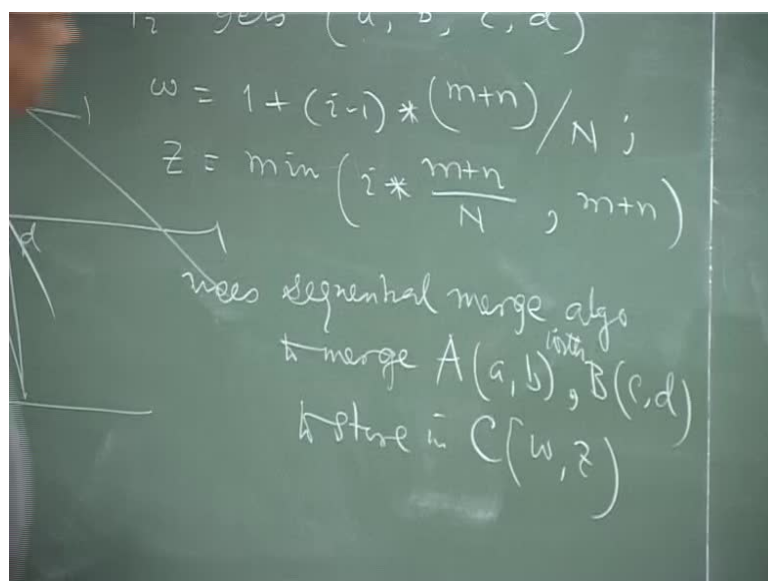 gets (a, b, c, d)
w = 1 + (i-1) * (m+n) / N ;
z = min ( i * \frac{m+n}{N} , m+n )
d
uses sequential merge algo
to merge A(a,b) with B(c,d)
to store in C(w,z)